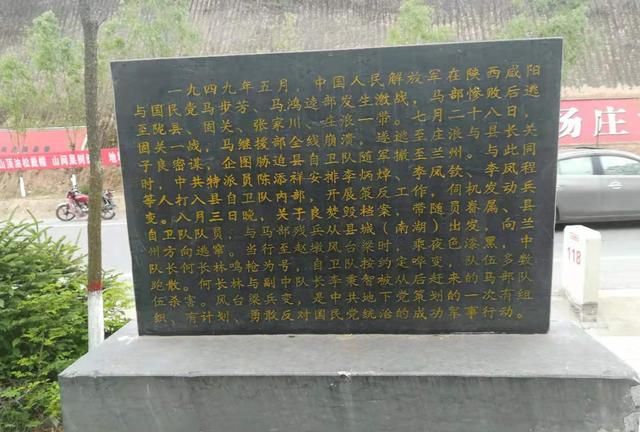 一九四九年五月，中国人民解放军在陕西咸阳
与国民党马步芳、马鸿逵部发生激战，马部惨败后逃
至陇县、固关、张家川、庄浪一带。七月二十八日，
固关一战，马继援部全线崩溃，遂逃至庄浪与县长关
子良密谋，企图胁迫县自卫队随军撤至兰州。与此同
时，中共特派员陈添祥安排李炳焯、李凤钦、李风程
等人打入县自卫队内部，开展策反工作，伺机发动兵
变。八月三日晚，关子良焚毁档案，带随员眷属、县
自卫队队员，与马部残兵从县城（南湖）出发，向兰
州方向逃窜。当行至赵墩风台梁时，乘夜色漆黑，中
队长何长林鸣枪为号，自卫队按约定哗变，队伍多数
跑散。何长林与副中队长李秉智被从后赶来的马部队
伍杀害。风台梁兵变，是中共地下党策划的一次有组
织、有计划、勇敢反对国民党统治的成功军事行动。
汤庄
118